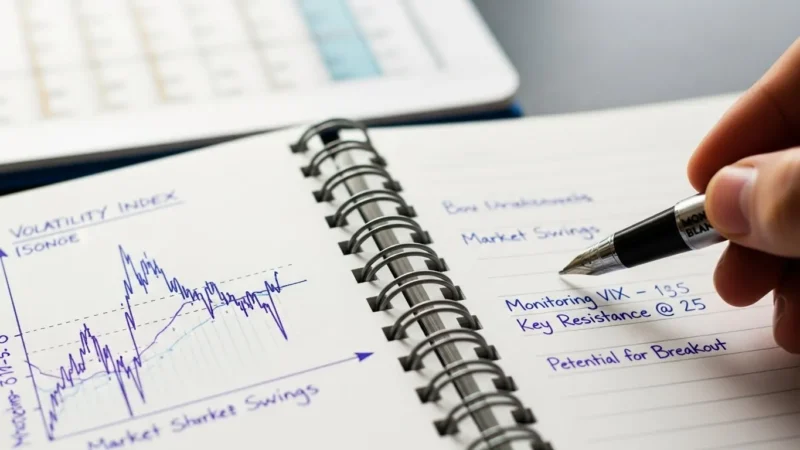 VOLATILITY INDEX
Market Sturket Swings
Market Swings
Monitoring VIX – 135
Key Resistance @ 25
Potential for Breakout
MON
BLAN